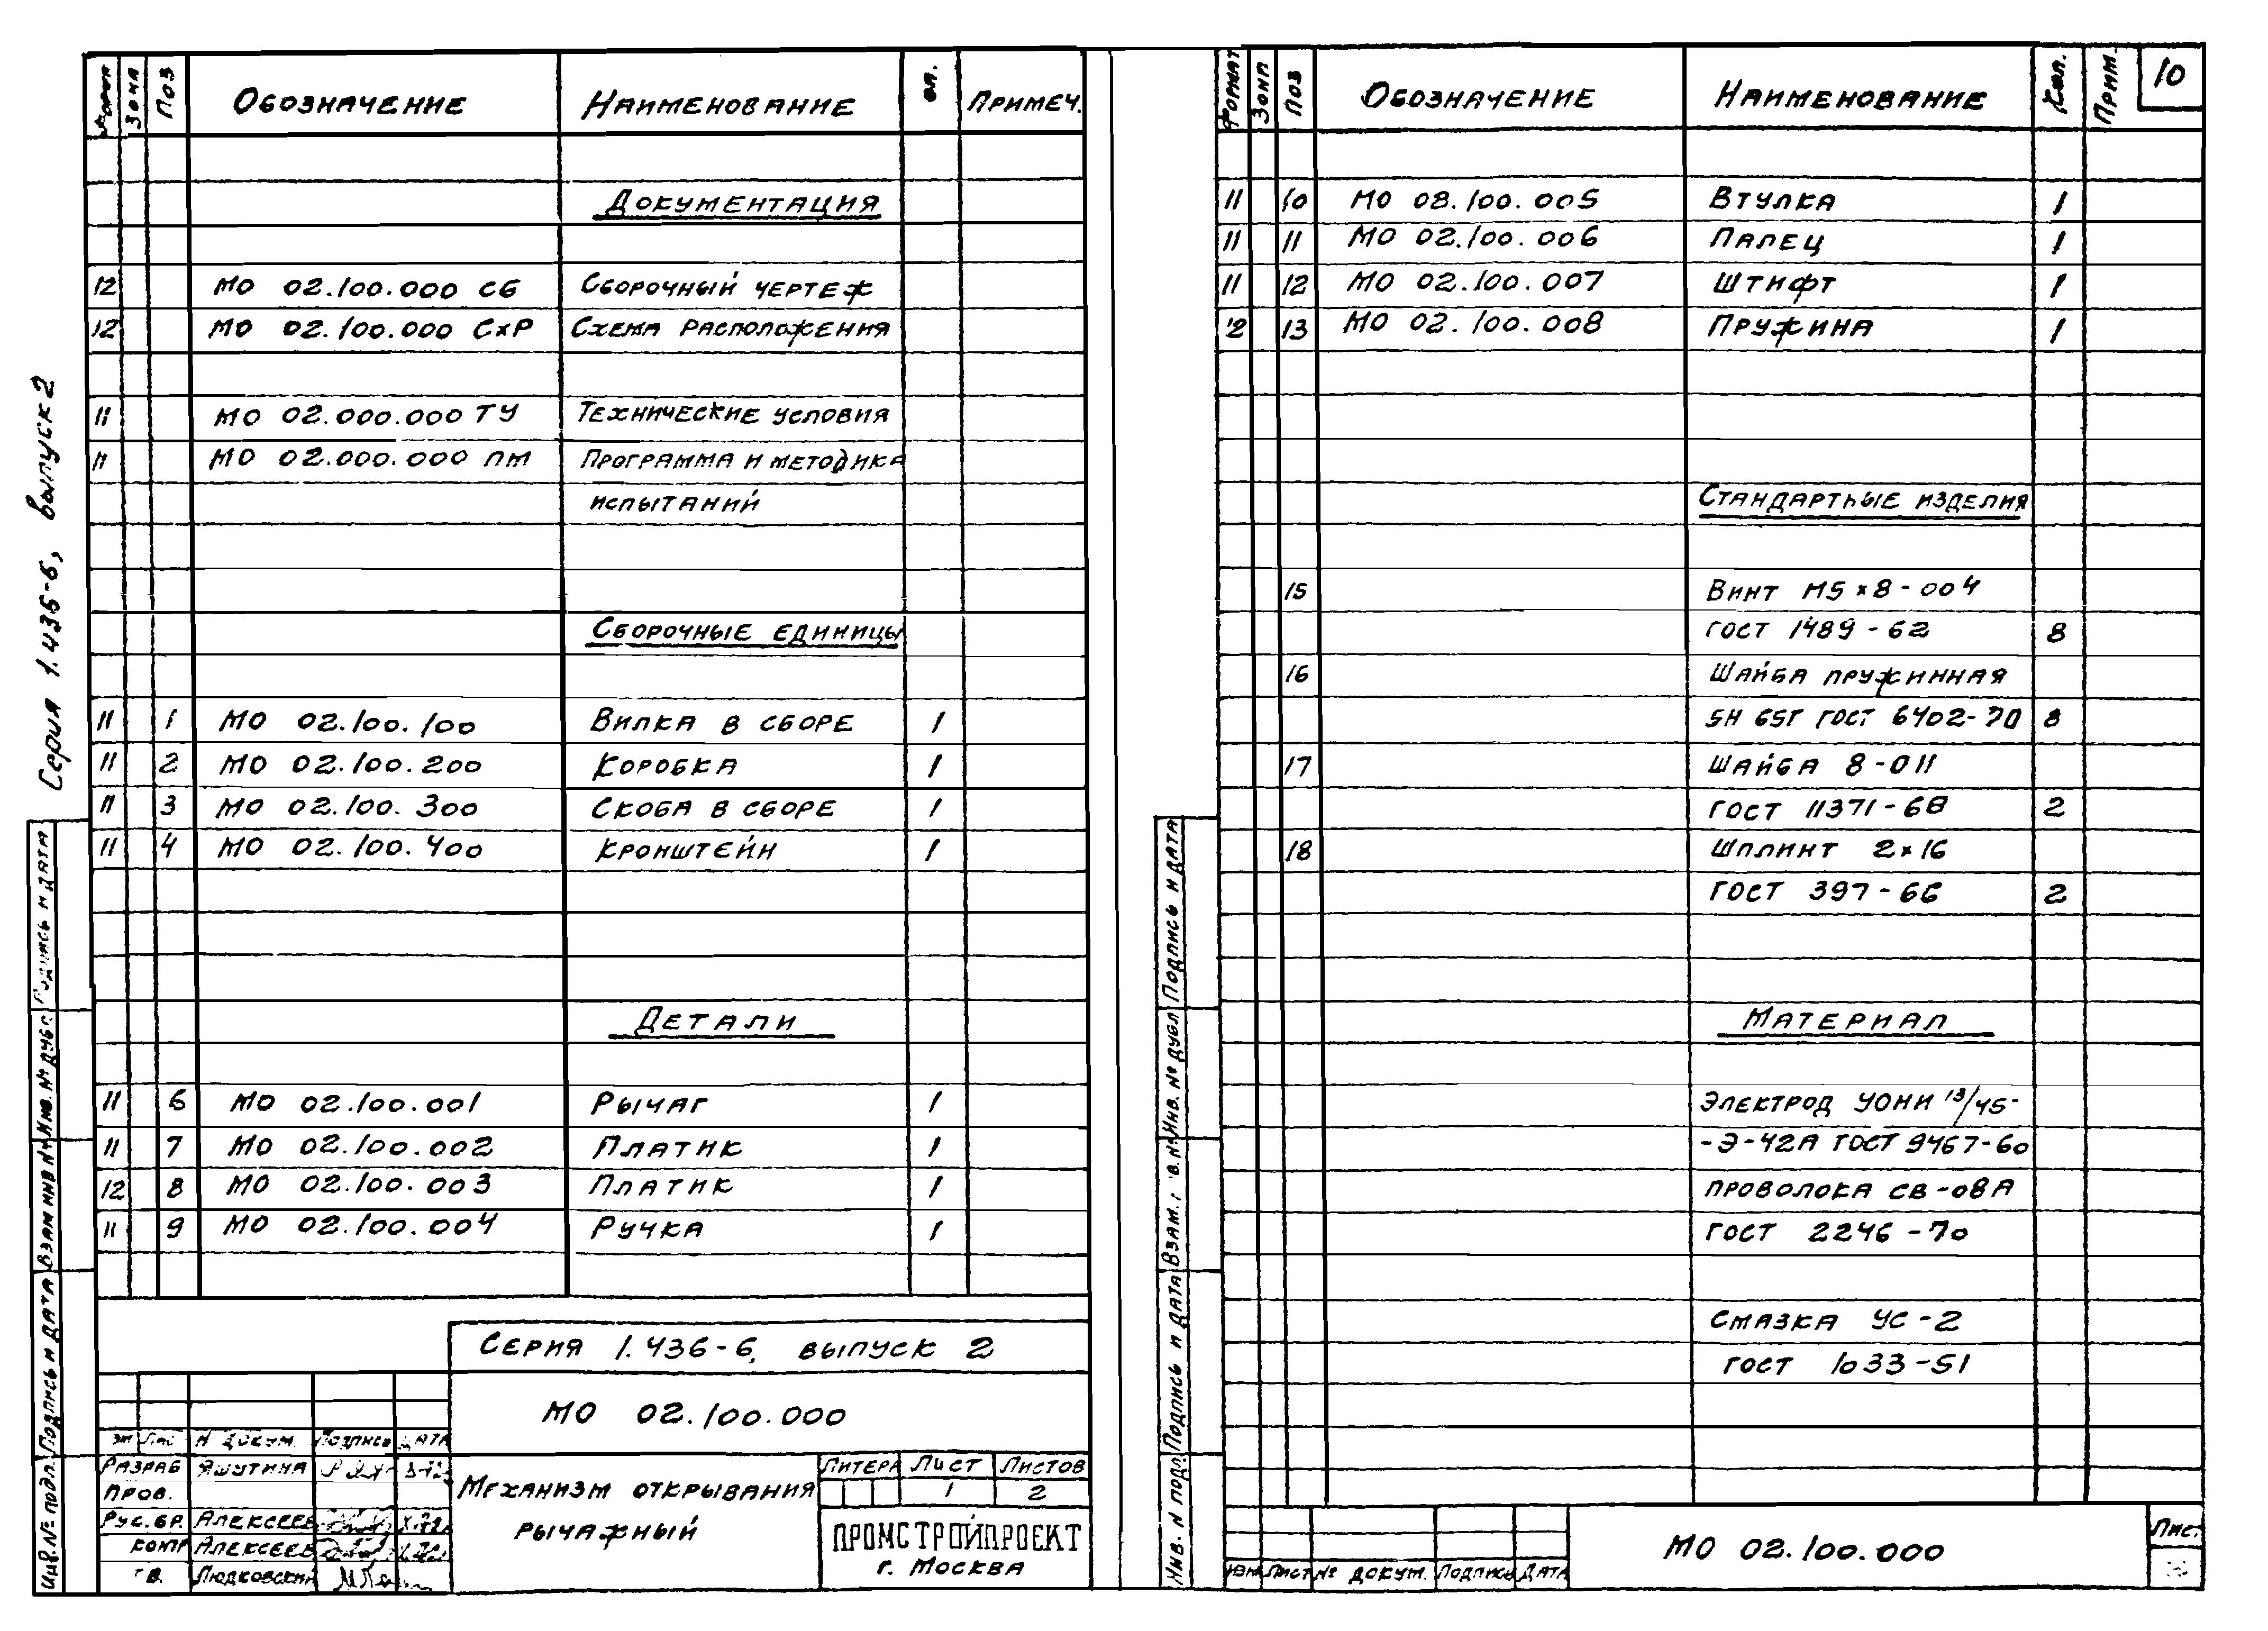 Серия 1.436-6, выпуск 2
Зона Поз Обозначение Наименование Примеч.
Документация
12 МО 02.100.000 СБ Сборочный чертеж
12 МО 02.100.000 СхР Схема расположения
11 МО 02.000.000 ТУ Технические условия
11 МО 02.000.000 ПМ Программа и методика
испытаний
Сборочные единицы
11 1 МО 02.100.100 Вилка в сборе 1
11 2 МО 02.100.200 Коробка 1
11 3 МО 02.100.300 Скоба в сборе 1
11 4 МО 02.100.400 Кронштейн 1
Детали
11 6 МО 02.100.001 Рычаг 1
11 7 МО 02.100.002 Платик 1
12 8 МО 02.100.003 Платик 1
11 9 МО 02.100.004 Ручка 1
Подпись и дата
Инв. № дубл.
Взам инв №
Подпись и дата
Инв. № подл.
Серия 1.436-6, выпуск 2
МО 02.100.000
Лис N докум. Подпись Дата
Разраб Яшутина
Пров.
Рук.бр. Алексеев
Алексеев
Людковский
Механизм открывания
рычажный
Литера Лист Листов
1 2
ПРОМСТРОЙПРОЕКТ
г. Москва
Формат Зона Поз Обозначение Наименование Кол. Прим. 10
11 10 МО 08.100.005 Втулка 1
11 11 МО 02.100.006 Палец 1
11 12 МО 02.100.007 Штифт 1
12 13 МО 02.100.008 Пружина 1
Стандартные изделия
15 Винт М5×8-004
ГОСТ 1489-62 8
16 Шайба пружинная
5Н 65Г ГОСТ 6402-70 8
17 Шайба 8-011
ГОСТ 11371-68 2
18 Шплинт 2×16
ГОСТ 397-66 2
Материал
Электрод УОНИ 13/45-
-Э-42А ГОСТ 9467-60
Проволока СВ-08А
ГОСТ 2246-70
Смазка УС-2
ГОСТ 1033-51
Подпись и дата
Инв. № дубл
Взам.
Подпись и дата
Инв. N подл
Изм Лист № докум. Подпись Дата
МО 02.100.000
Лис.